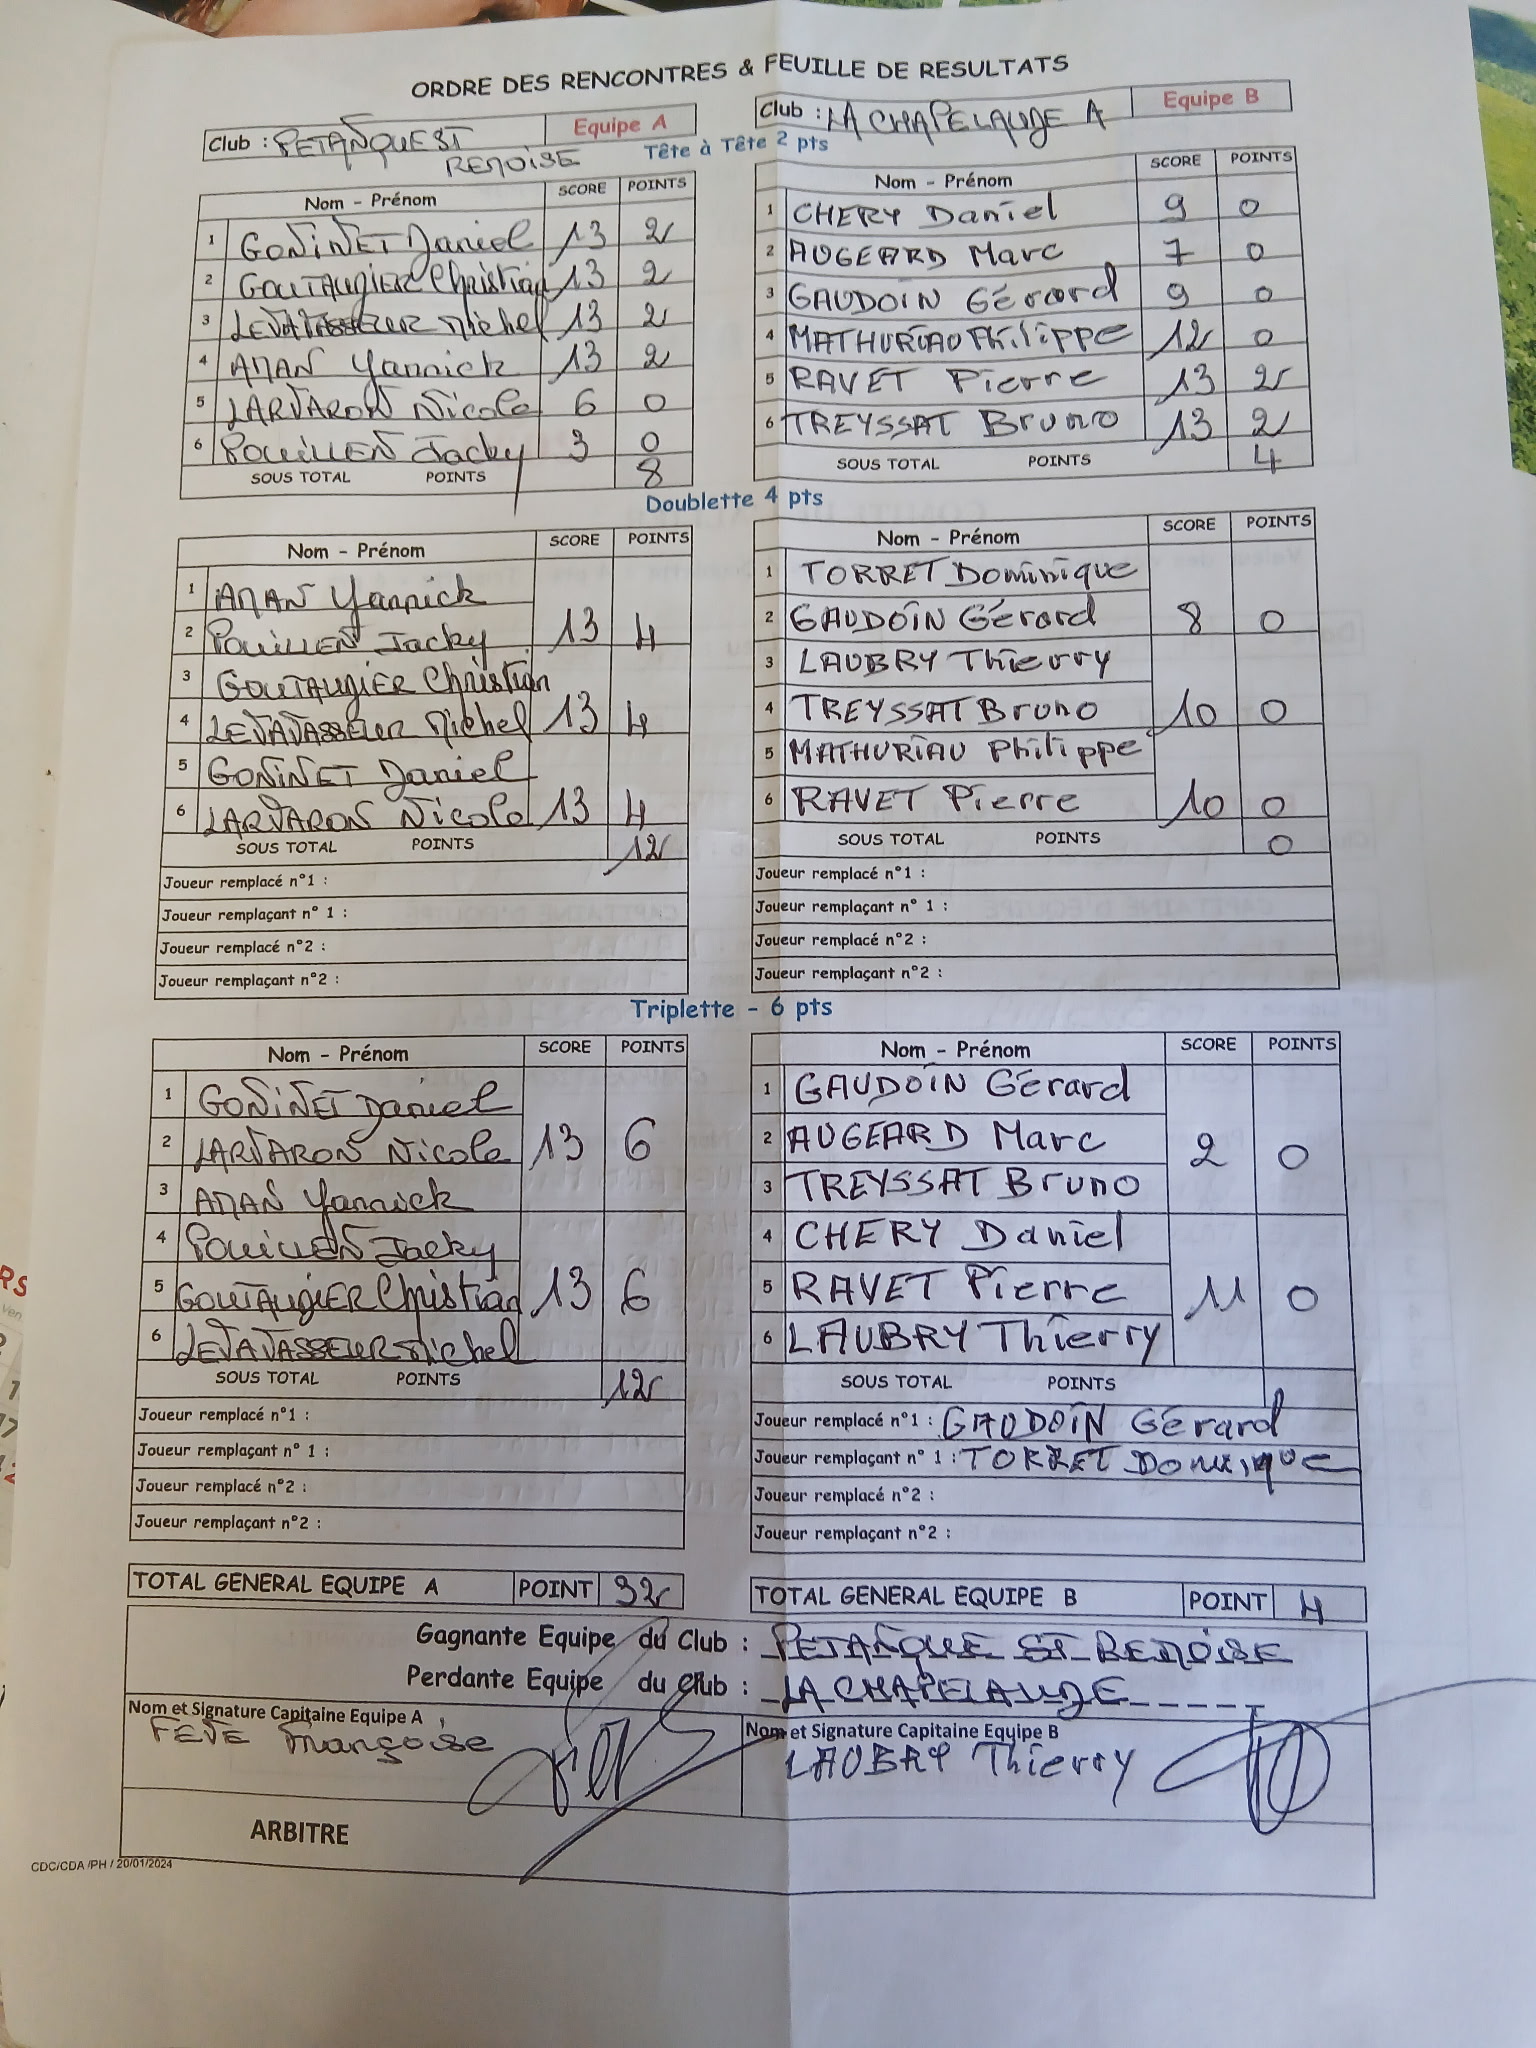 ORDRE DES RENCONTRES & FEUILLE DE RESULTATS
Club : PETANQUE ST REMOISE
Equipe A
Club : LA CHAPELAUDE A
Equipe B
Tête à Tête 2 pts
Nom - Prénom SCORE POINTS
1 GONINET Daniel 13 2
2 GOUTAUGIER Christian 13 2
3 LEVAVASSEUR Michel 13 2
4 AMAN Yannick 13 2
5 LARVARON Nicole 6 0
6 POUILLEN Jacky 3 0
SOUS TOTAL POINTS 8
Nom - Prénom SCORE POINTS
1 CHERY Daniel 9 0
2 AUGEARD Marc 7 0
3 GAUDOIN Gérard 9 0
4 MATHURIAU Philippe 12 0
5 RAVET Pierre 13 2
6 TREYSSAT Bruno 13 2
SOUS TOTAL POINTS 4
Doublette 4 pts
Nom - Prénom SCORE POINTS
1 AMAN Yannick
2 POUILLEN Jacky 13 4
3 GOUTAUGIER Christian
4 LEVAVASSEUR Michel 13 4
5 GONINET Daniel
6 LARVARON Nicole 13 4
SOUS TOTAL POINTS 12
Joueur remplacé n°1 :
Joueur remplaçant n° 1 :
Joueur remplacé n°2 :
Joueur remplaçant n°2 :
Nom - Prénom SCORE POINTS
1 TORRET Dominique
2 GAUDOIN Gérard 8 0
3 LAUBRY Thierry
4 TREYSSAT Bruno 10 0
5 MATHURIAU Philippe
6 RAVET Pierre 10 0
SOUS TOTAL POINTS 0
Joueur remplacé n°1 :
Joueur remplaçant n° 1 :
Joueur remplacé n°2 :
Joueur remplaçant n°2 :
Triplette - 6 pts
Nom - Prénom SCORE POINTS
1 GONINET Daniel
2 LARVARON Nicole 13 6
3 AMAN Yannick
4 POUILLEN Jacky
5 GOUTAUGIER Christian 13 6
6 LEVAVASSEUR Michel
SOUS TOTAL POINTS 12
Joueur remplacé n°1 :
Joueur remplaçant n° 1 :
Joueur remplacé n°2 :
Joueur remplaçant n°2 :
Nom - Prénom SCORE POINTS
1 GAUDOIN Gérard
2 AUGEARD Marc 2 0
3 TREYSSAT Bruno
4 CHERY Daniel
5 RAVET Pierre 11 0
6 LAUBRY Thierry
SOUS TOTAL POINTS
Joueur remplacé n°1 : GAUDOIN Gérard
Joueur remplaçant n° 1 : TORRET Dominique
Joueur remplacé n°2 :
Joueur remplaçant n°2 :
TOTAL GENERAL EQUIPE A POINT 32
TOTAL GENERAL EQUIPE B POINT 4
Gagnante Equipe du Club : PETANQUE ST REMOISE
Perdante Equipe du Club : LA CHAPELAUDE
Nom et Signature Capitaine Equipe A
FEVE Françoise
Nom et Signature Capitaine Equipe B
LAUBRY Thierry
ARBITRE
CDC/CDA /PH / 20/01/2024